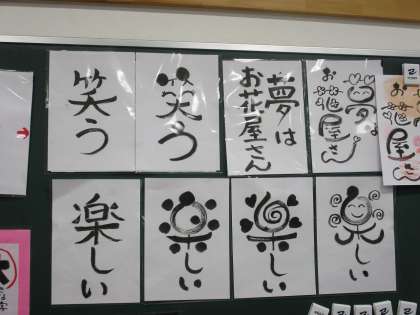 笑う
笑う
夢は
お花屋さん
夢は
お花屋さん
楽しい
楽しい
楽しい
楽しい